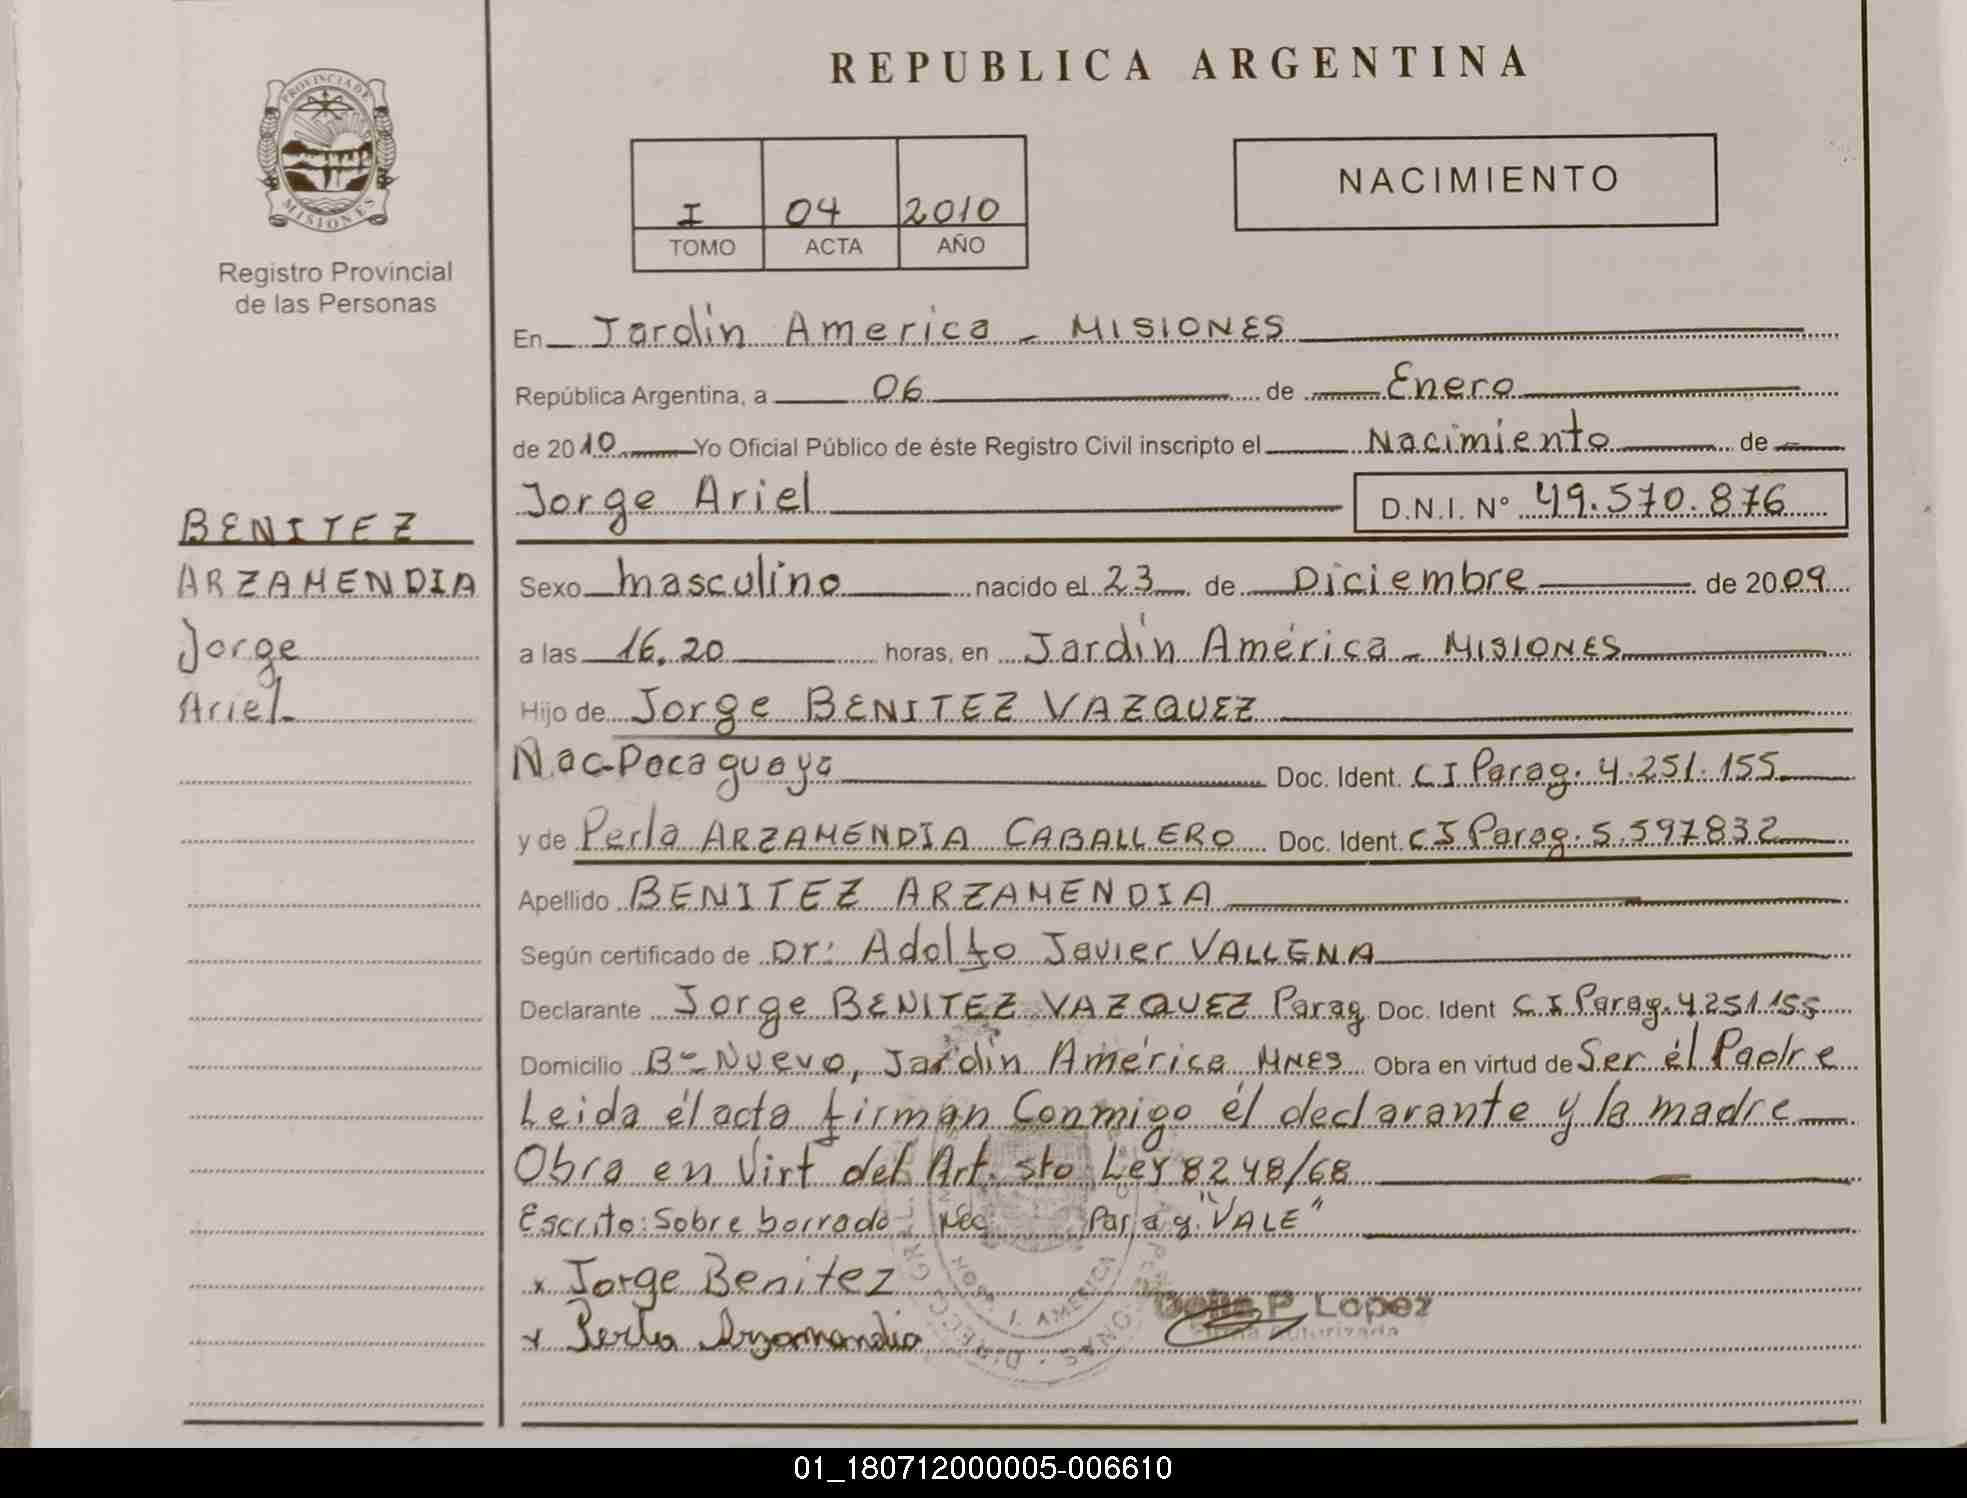 REPUBLICA ARGENTINA
PROVINCIA DE
MISIONES
Registro Provincial
de las Personas
I 04 2010
TOMO ACTA AÑO
NACIMIENTO
En Jardín America - MISIONES
República Argentina, a 06 de Enero
de 2010 Yo Oficial Público de éste Registro Civil inscripto el Nacimiento de
Jorge Ariel D.N.I. Nº 49.570.876
BENITEZ
ARZAMENDIA
Jorge
Ariel
Sexo masculino nacido el 23 de Diciembre de 2009
a las 16.20 horas, en Jardín América - MISIONES
Hijo de Jorge BENITEZ VAZQUEZ
Nac-Paraguaya Doc. Ident. CI Parag. 4.251.155
y de Perla ARZAMENDIA CABALLERO Doc. Ident. CI Parag. 5.597832
Apellido BENITEZ ARZAMENDIA
Según certificado de Dr: Adolfo Javier VALLENA
Declarante Jorge BENITEZ VAZQUEZ Parag Doc. Ident C.I Parag. 4251.155
Domicilio Bº Nuevo, Jardín América MNES Obra en virtud de Ser él Padre
Leida él acta firman Conmigo él declarante y la madre
Obra en Virt del Art. sto Ley 8248/68
Escrito: Sobre borrado Nac Parag. "VALE"
x Jorge Benitez
x Perla Arzamendia
P. Lopez
Autorizada
J. AMERICA
01_180712000005-006610